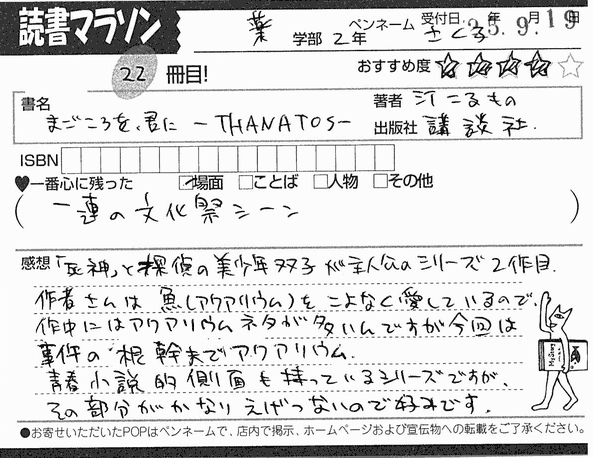 読書マラソン
薬 学部 2年 ペンネーム さくら 受付日 25年9月19日
22 冊目!
おすすめ度 ★★★★☆
書名 まごころを、君に －THANATOS－
著者 汀こるもの
出版社 講談社.
ISBN
♥一番心に残った ☑場面 □ことば □人物 □その他
(一連の文化祭シーン)
感想 「死神」と探偵の美少年双子が主人公のシリーズ2作目.
作者さんは魚(アクアリウム)をこよなく愛しているので、
作中にはアクアリウムネタが多いんですが今回は
事件の根幹までアクアリウム.
青春小説的側面も持っているシリーズですが、
その部分がかなりえげつないので好みです.
●お寄せいただいたPOPはペンネームで、店内で掲示、ホームページおよび宣伝物への転載をご了承ください。